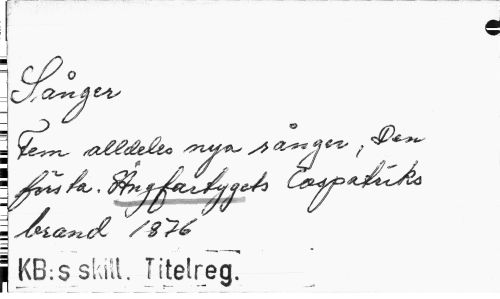 Sånger
Fem alldeles nya sånger, Den
första. Ångfartygets Cospatriks
brand 1876
KB:s skill. Titelreg.